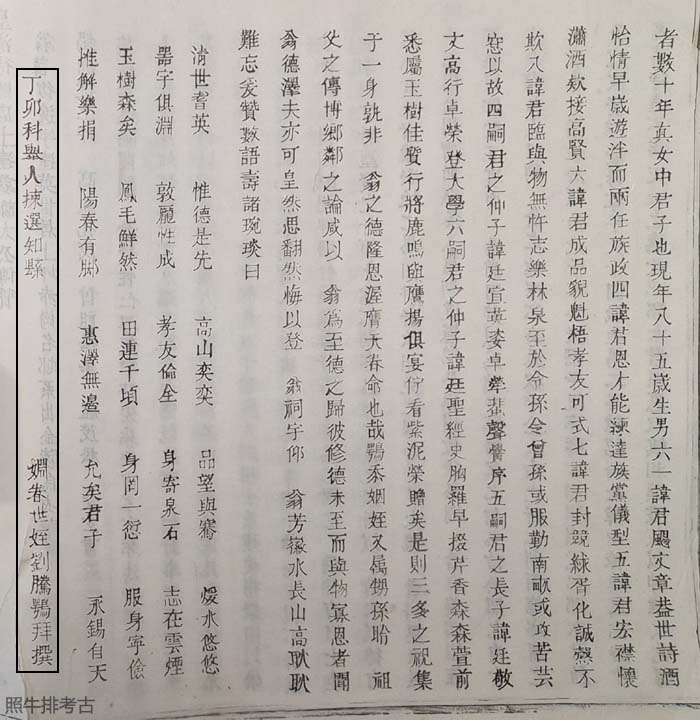 者數十年真女中君子也現年八十五歲生男六一諱君颺文章蓋世詩酒
怡情早歲遊泮而兩任族政四諱君恩才能練達族黨儀型五諱君宏襟懷
瀟洒欵接高賢六諱君成品貌魁梧孝友可式七諱君封兢綠胥化誠愨不
欺又諱君臨與物無忤志樂林泉至於令孫令曾孫或服勤南畝或攻苦芸
窓以故四嗣君之仲子諱廷宣英姿卓犖蜚聲黌序五嗣君之長子諱廷敬
文高行卓榮登大學六嗣君之仲子諱廷聖經史胸羅早掇芹香森森萱前
悉屬玉樹佳賢行將鹿鳴與鷹揚俱宴佇看紫泥榮贈矣是則三多之祝集
于一身孰非 翁之德隆恩渥膺天眷命也哉鶚忝姻姪又屬甥孫聆 祖
父之傳博鄉鄰之論咸以 翁爲至德之歸彼修德未至而與物寡恩者聞
翁德澤夫亦可皇然思翻然悔以登 翁祠宇仰 翁芳徽水長山高耿耿
難忘爰贊數語壽諸琬琰曰
清世耆英 惟德是先 高山奕奕 品望與騫 煖水悠悠
器宇俱淵 敦龎性成 孝友倫全 身寄泉石 志在雲煙
玉樹森矣 鳳毛鮮然 田連千頃 身罔一愆 服身寧儉
推解樂捐 陽春有脚 惠澤無邊 允矣君子 永錫自天
丁卯科舉人揀選知縣 姻眷世姪劉騰鶚拜撰
照牛排考古